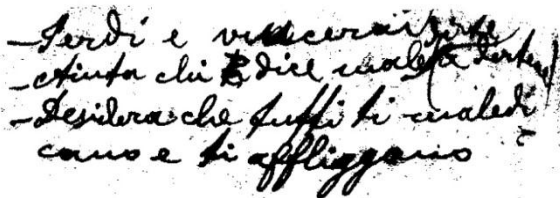 - Perdi e vincerai
- Aiuta chi dice male
- Desidera che tutti ti maledi
cano e ti affliggano